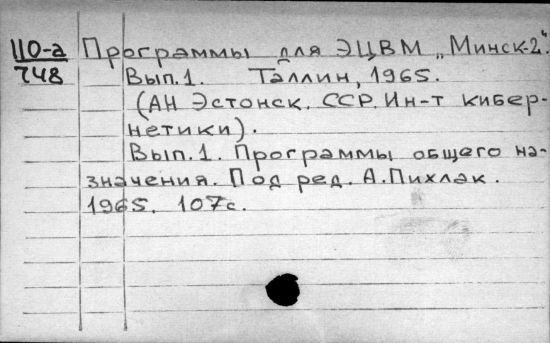 110-а Программы для ЭЦВМ „Минск-2“.
748 Вып.1. Таллин, 1965.
(АН Эстонск. ССР. Ин-т кибер-
нетики).
Вып.1. Программы общего на-
значения. Под ред. А.Пихлак.
1965. 107с.